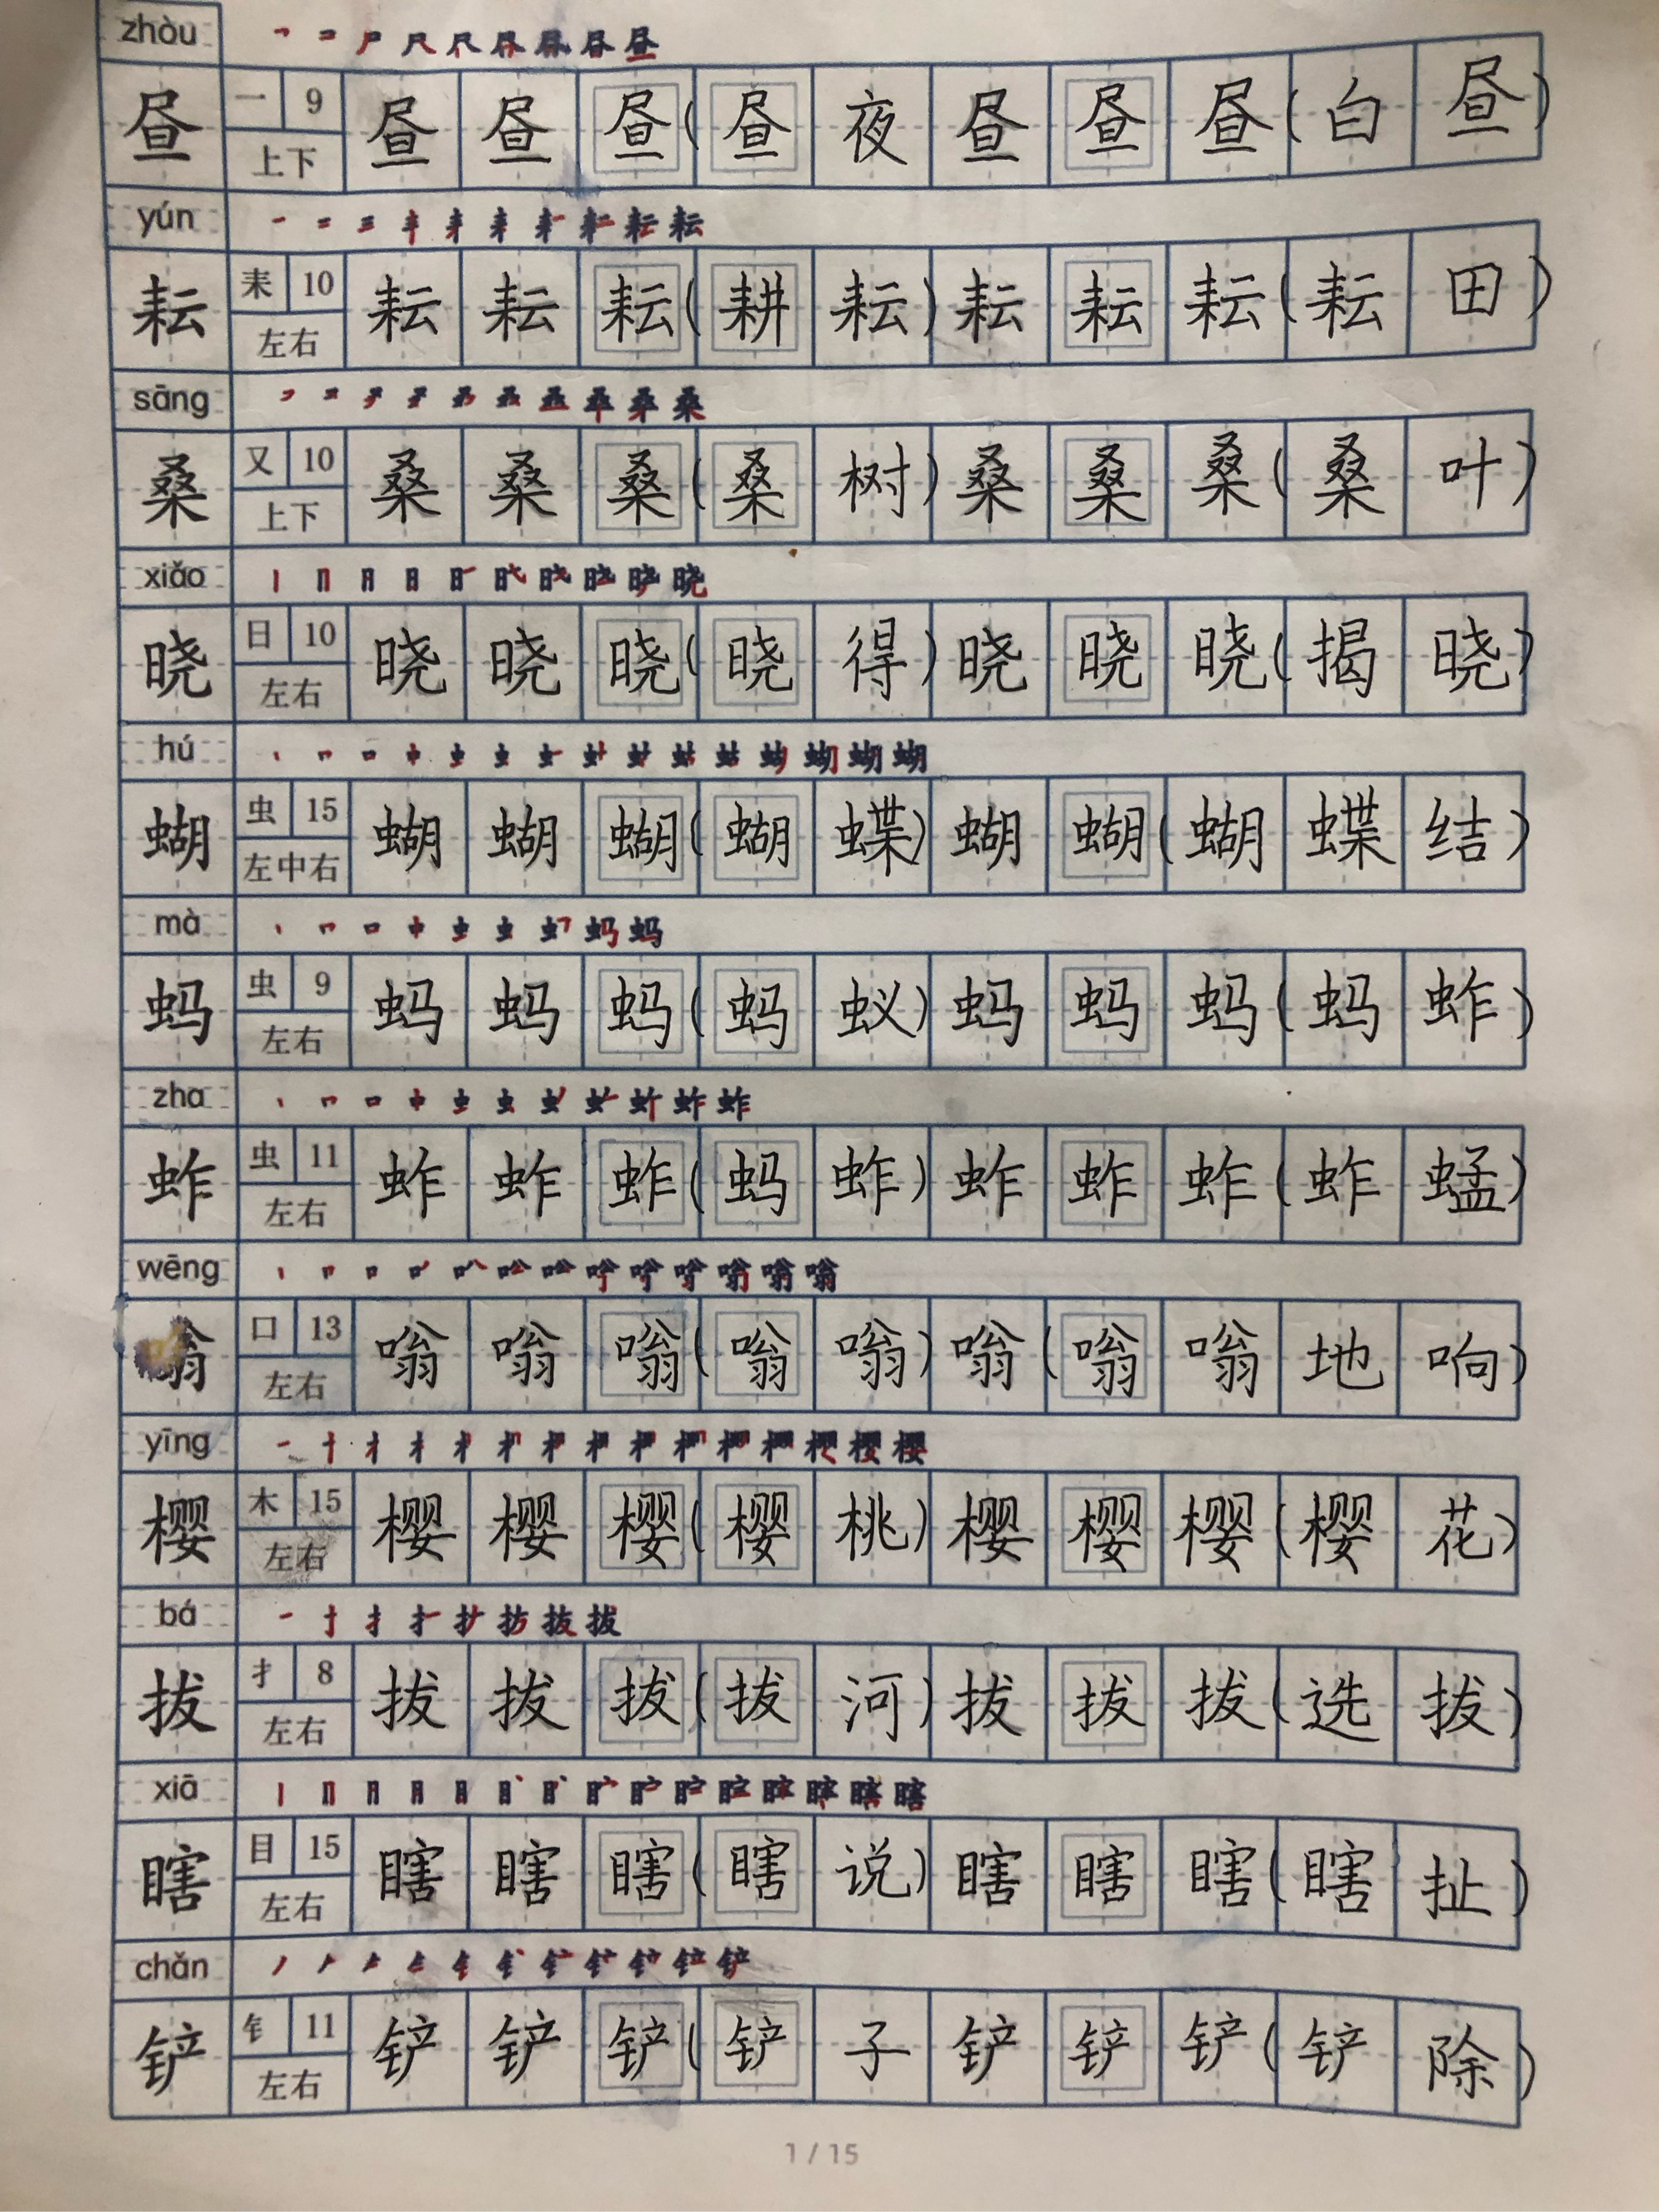 zhòu
昼 一 9 上下 昼 昼 昼 ( 昼 夜 昼 昼 昼 ( 白 昼 )
yún
耘 耒 10 左右 耘 耘 耘 ( 耕 耘 ) 耘 耘 耘 ( 耘 田 )
sāng
桑 又 10 上下 桑 桑 桑 ( 桑 树 ) 桑 桑 桑 ( 桑 叶 )
xiǎo
晓 日 10 左右 晓 晓 晓 ( 晓 得 ) 晓 晓 晓 ( 揭 晓 )
hú
蝴 虫 15 左中右 蝴 蝴 蝴 ( 蝴 蝶 ) 蝴 蝴 ( 蝴 蝶 结 )
mà
蚂 虫 9 左右 蚂 蚂 蚂 ( 蚂 蚁 ) 蚂 蚂 蚂 ( 蚂 蚱 )
zha
蚱 虫 11 左右 蚱 蚱 蚱 ( 蚂 蚱 ) 蚱 蚱 蚱 ( 蚱 蜢 )
wēng
嗡 口 13 左右 嗡 嗡 嗡 ( 嗡 嗡 ) 嗡 ( 嗡 嗡 地 响 )
yīng
樱 木 15 左右 樱 樱 樱 ( 樱 桃 ) 樱 樱 樱 ( 樱 花 )
bá
拔 扌 8 左右 拔 拔 拔 ( 拔 河 ) 拔 拔 拔 ( 选 拔 )
xiā
瞎 目 15 左右 瞎 瞎 瞎 ( 瞎 说 ) 瞎 瞎 瞎 ( 瞎 扯 )
chǎn
铲 钅 11 左右 铲 铲 铲 ( 铲 子 铲 铲 铲 ( 铲 除 )
1 / 15